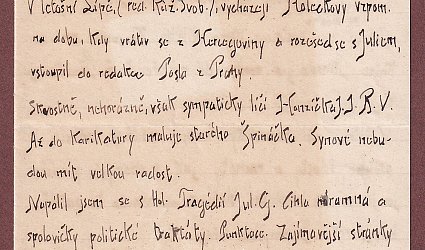 V letošní Lípě, (red. Káz. Svob.), vycházejí Holečkovy vzpom.
na dobu, kdy vrátiv se z Hercegoviny a rozešed se s Juliem,
vstoupil do redakce Posla z Prahy.
Skvostně, nehorázně, však sympaticky líčí J. R. V.
Až do karikatury maluje starého Špináčka. Synové nebu-
dou mít velkou radost.
Napálil jsem se s Hol. Tragédií Jul. G. Cihla ohromná a
spolovičky politické traktáty. Punktace. Zajímavější stránky